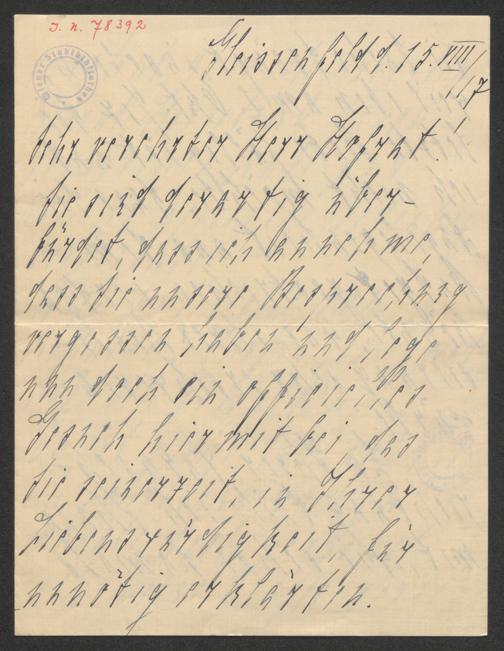 I. N. 78392
Wiener Stadtbibliothek
Gleissenfeld d. 15. VIII/
17
Sehr verehrter Herr Hofrat!
Sie sind derartig über-
bürdet dass ich annehme,
dass Sie unsere Besprechung
vergessen haben und lege
nun doch ein officielles
Gesuch hiermit bei, das
Sie seinerzeit, in Ihrer
Liebenswürdigkeit, für
unnötig erklärten.